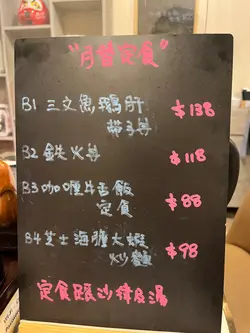 "月替定食"
B1 三文魚鵝肝
帶子丼 $138
B2 鉄火丼 $118
B3 咖喱牛舌飯
定食 $88
B4 芝士海膽大蝦
炒麵 $98
定食跟沙律及湯